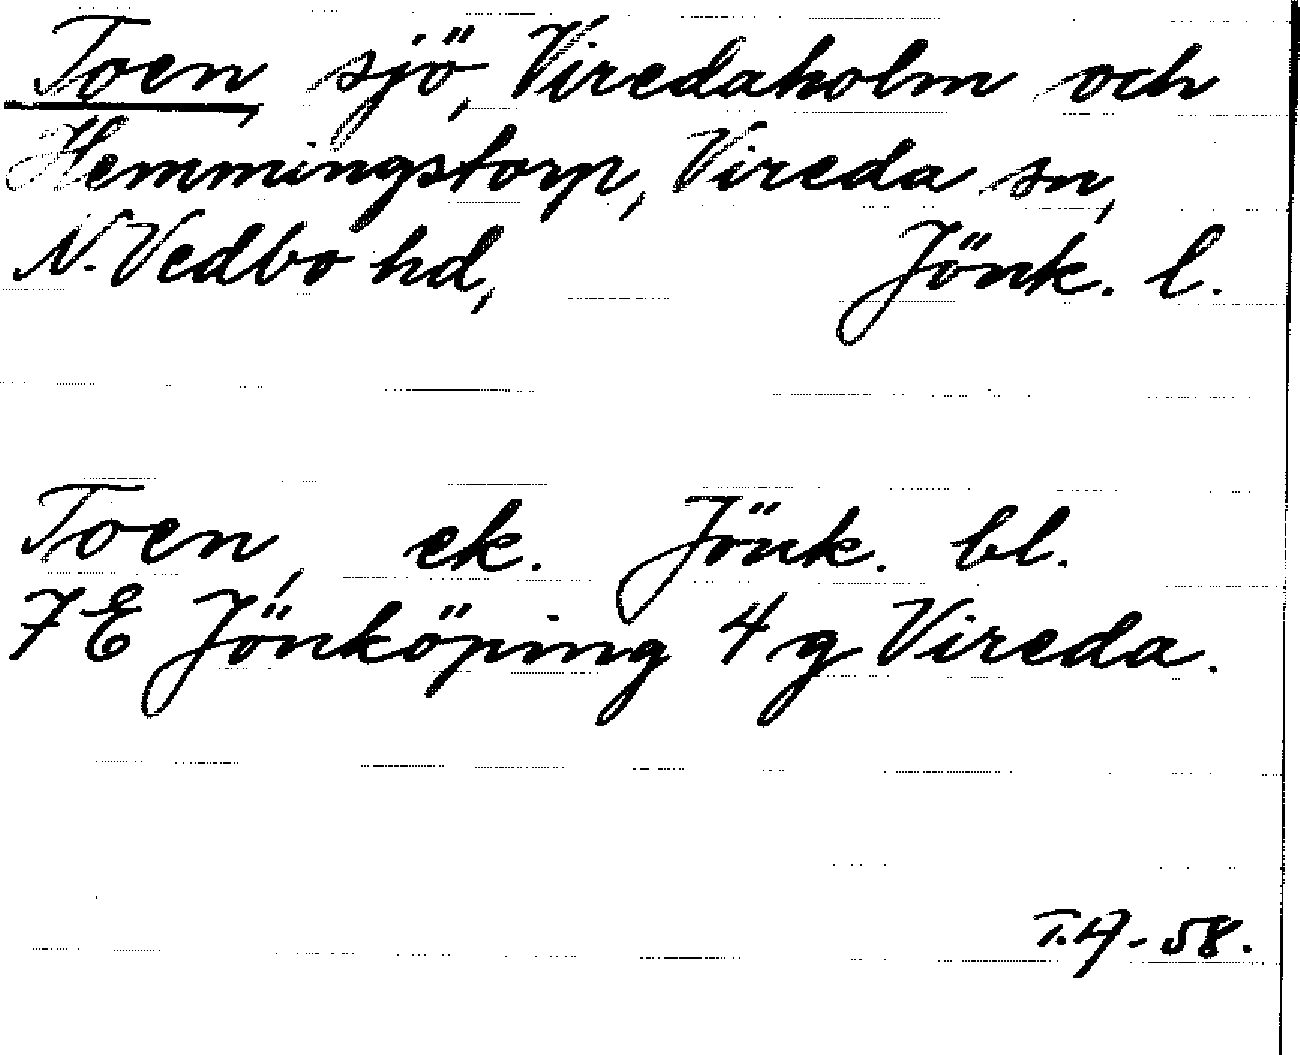 Toen, sjö, Viredaholm och
Hemmingstorp, Vireda sn,
N. Vedbo hd, Jönk. l.
Toen, ek. Jönk. bl.
7E Jönköping 4g Vireda.
T.A-58.